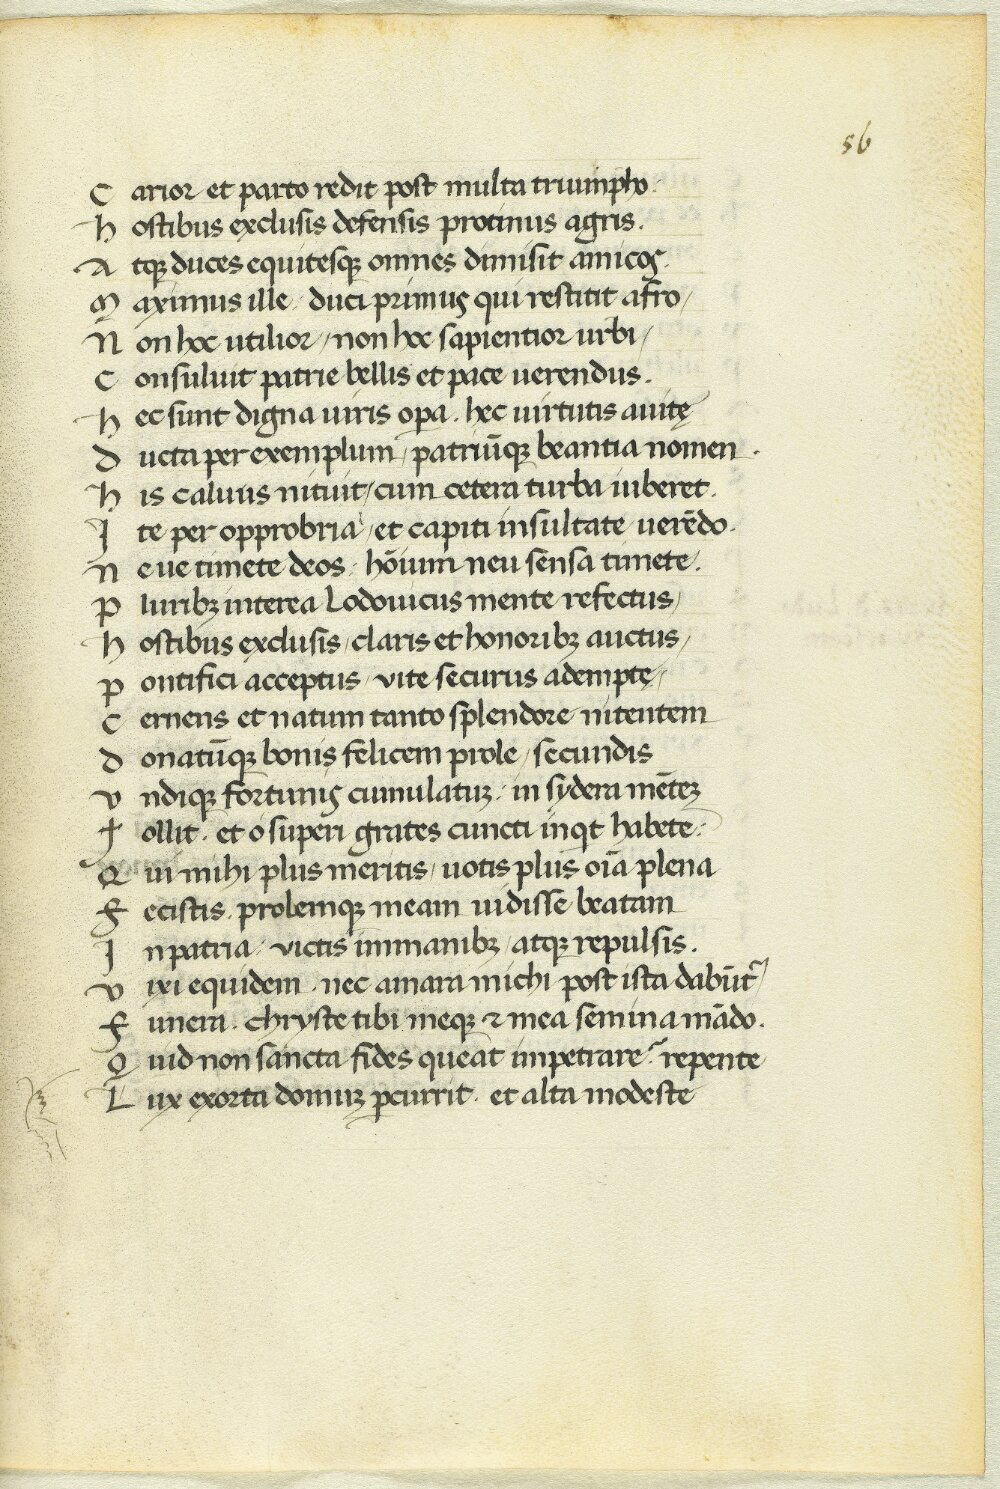 56
Carior et parto redit post multa triumpho.
hostibus exclusis defensis protinus agris.
Atqꝫ duces equitesqꝫ omnes dimisit amicos.
Maximus ille / duci primus qui restitit afro /
Non hoc utilior / non hoc sapientior urbi /
Consuluit patrie bellis et pace uerendus.
hec sunt digna uiris opa. hec uirtutis auitę
ducta per exemplum / patriūqꝫ beantia nomen.
his caluus nituit / cum cetera turba iuberet.
Ite per opprobria / et capiti insultate uerēdo.
neue timete deos / hōium neu sensa timete.
pluribꝫ interea Lodouicus mente refectus /
hostibus exclusis / claris et honoribꝫ auctus /
pontifici acceptus / vite securus ademptę /
Cernens et natum tanto splendore nitentem
donatūqꝫ bonis felicem prole / secundis
vndiqꝫ fortunis cumulatuꝫ / in sydera mēteꝫ
tollit. et o superi grates cuncti inqt habete.
Qui mihi plus meritis / uotis plus oīa plena
fecistis. prolemqꝫ meam uidisse beatam
In patria / victis immanibꝫ / atqꝫ repulsis.
vixi equidem. nec amara michi post ista dabūt᷑ /
funera. chryste tibi meqꝫ ⁊ mea semina mādo.
Quid non sancta fides queat impetrare? repente
Lux exorta domuꝫ ꝑcurrit. et alta modeste